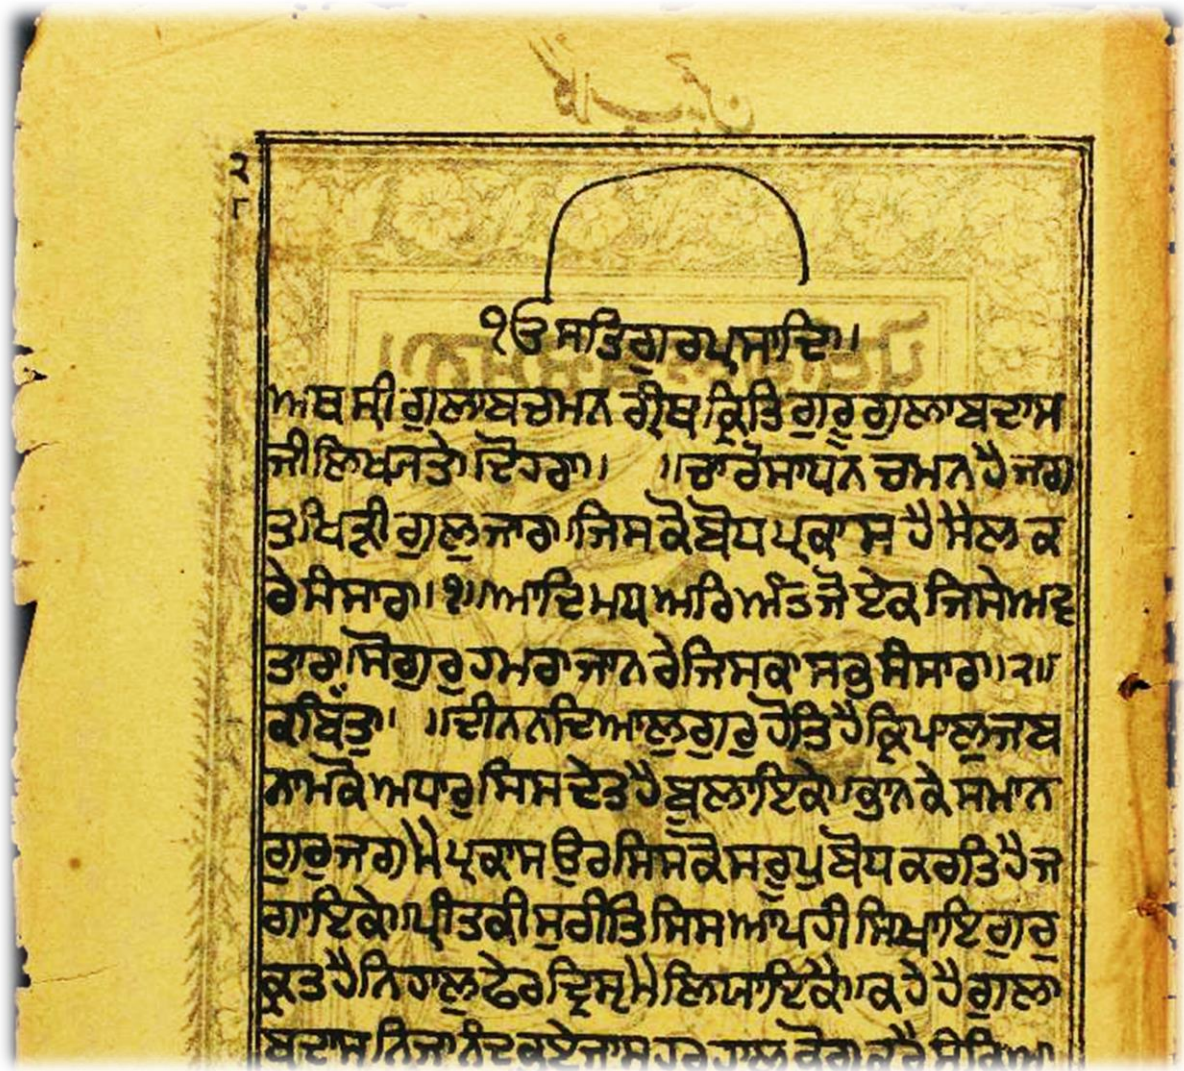 ੨
੧ਓ ਸਤਿਗੁਰਪ੍ਰਸਾਦਿ॥
ਅਥ ਸ੍ਰੀ ਗੁਲਾਬਚਮਨ ਗ੍ਰੰਥ ਕ੍ਰਿਤਿ ਗੁਰੂ ਗੁਲਾਬਦਾਸ
ਜੀ ਲਿਖਯਤੇ ਦੋਹਰਾ॥ ॥ਚਾਰੋਸਾਧਨ ਚਮਨ ਹੈ ਜਗ
ਤ ਖਿੜੀ ਗੁਲੁਜਾਰ॥ਜਿਸ ਕੋ ਬੋਧ ਪ੍ਰਕਾਸ ਹੈ ਸੈਲ ਕ
ਰੇ ਸੰਸਾਰ॥੧॥ਆਦਿ ਮਧ ਅਰਿ ਅੰਤ ਜੋ ਏਕ ਜਿਸੇ ਅਵ
ਤਾਰ॥ਸੋ ਗੁਰੁ ਹਮਰਾ ਜਾਨ ਰੇ ਜਿਸਕਾ ਸਭੁ ਸੰਸਾਰ॥੨॥
ਕਬਿੱਤੁ॥ ॥ਦੀਨਨ ਦਿਆਲੁ ਗੁਰੁ ਹੋਤਿ ਹੈ ਕ੍ਰਿਪਾਲੁ ਜਬ
ਨਾਮ ਕੋ ਅਧਾਰੁ ਸਿਸ ਦੇਤ ਹੈ ਬੁਲਾਇਕੇ॥ਭਾਨ ਕੇ ਸਮਾਨ
ਗੁਰੁ ਜਗ ਮੈ ਪ੍ਰਕਾਸ ਉਰ ਸਿਸ ਕੋ ਸਰੂਪੁ ਬੋਧ ਕਰਤਿ ਹੈ ਜ
ਗਾਇਕੇ॥ਪ੍ਰੀਤ ਕੀ ਸੁਰੀਤਿ ਸਿਸ ਆਪ ਹੀ ਸਿਖਾਇ ਗੁਰ
ਕ੍ਰਤ ਹੈ ਨਿਹਾਲੁ ਫੇਰ ਦ੍ਰਿਸ੍ਟ ਮੈ ਲਿਯਾਇਕੈ॥ਕਹੇ ਹੈ ਗੁਲਾ
ਬਦਾਸ